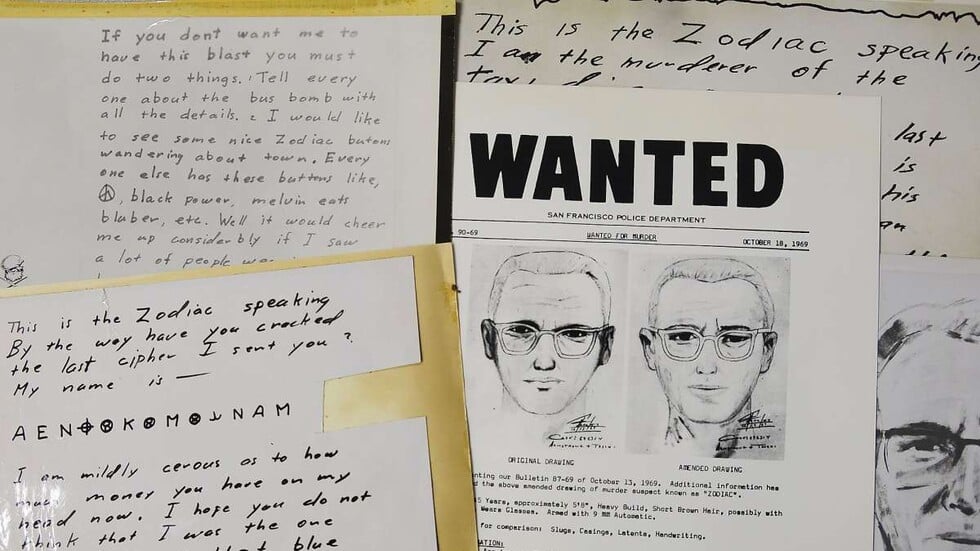 If you dont want me to
have this blast you must
do two things. 1 Tell every
one about the bus bomb with
all the details. 2 I would like
to see some nice Zodiac butons
wandering about town. Every
one else has these buttons like,
☮, black power, melvin eats
bluber, etc. Well it would cheer
me up considerbly if I saw
a lot of people
This is the Zodiac speaking
I am the murderer of the
taxi
last
is
his
an
This is the Zodiac speaking
By the way have you cracked
the last cipher I sent you?
My name is —
A E N ⌖ ⊗ K ⊗ M ⊗ ⅃ N A M
I am mildly cerous as to how
much money you have on my
head now. I hope you do not
think that I was the one
that blue
WANTED
SAN FRANCISCO POLICE DEPARTMENT
90-69 WANTED FOR MURDER OCTOBER 18, 1969
ORIGINAL DRAWING AMENDED DRAWING
nting our Bulletin 87-69 of October 13, 1969. Additional information has
the above amended drawing of murder suspect known as "ZODIAC".
5 Years, approximately 5'8", Heavy Build, Short Brown Hair, possibly with
Wears Glasses. Armed with 9 MM Automatic.
for comparison: Slugs, Casings, Latents, Handwriting.
ATION: